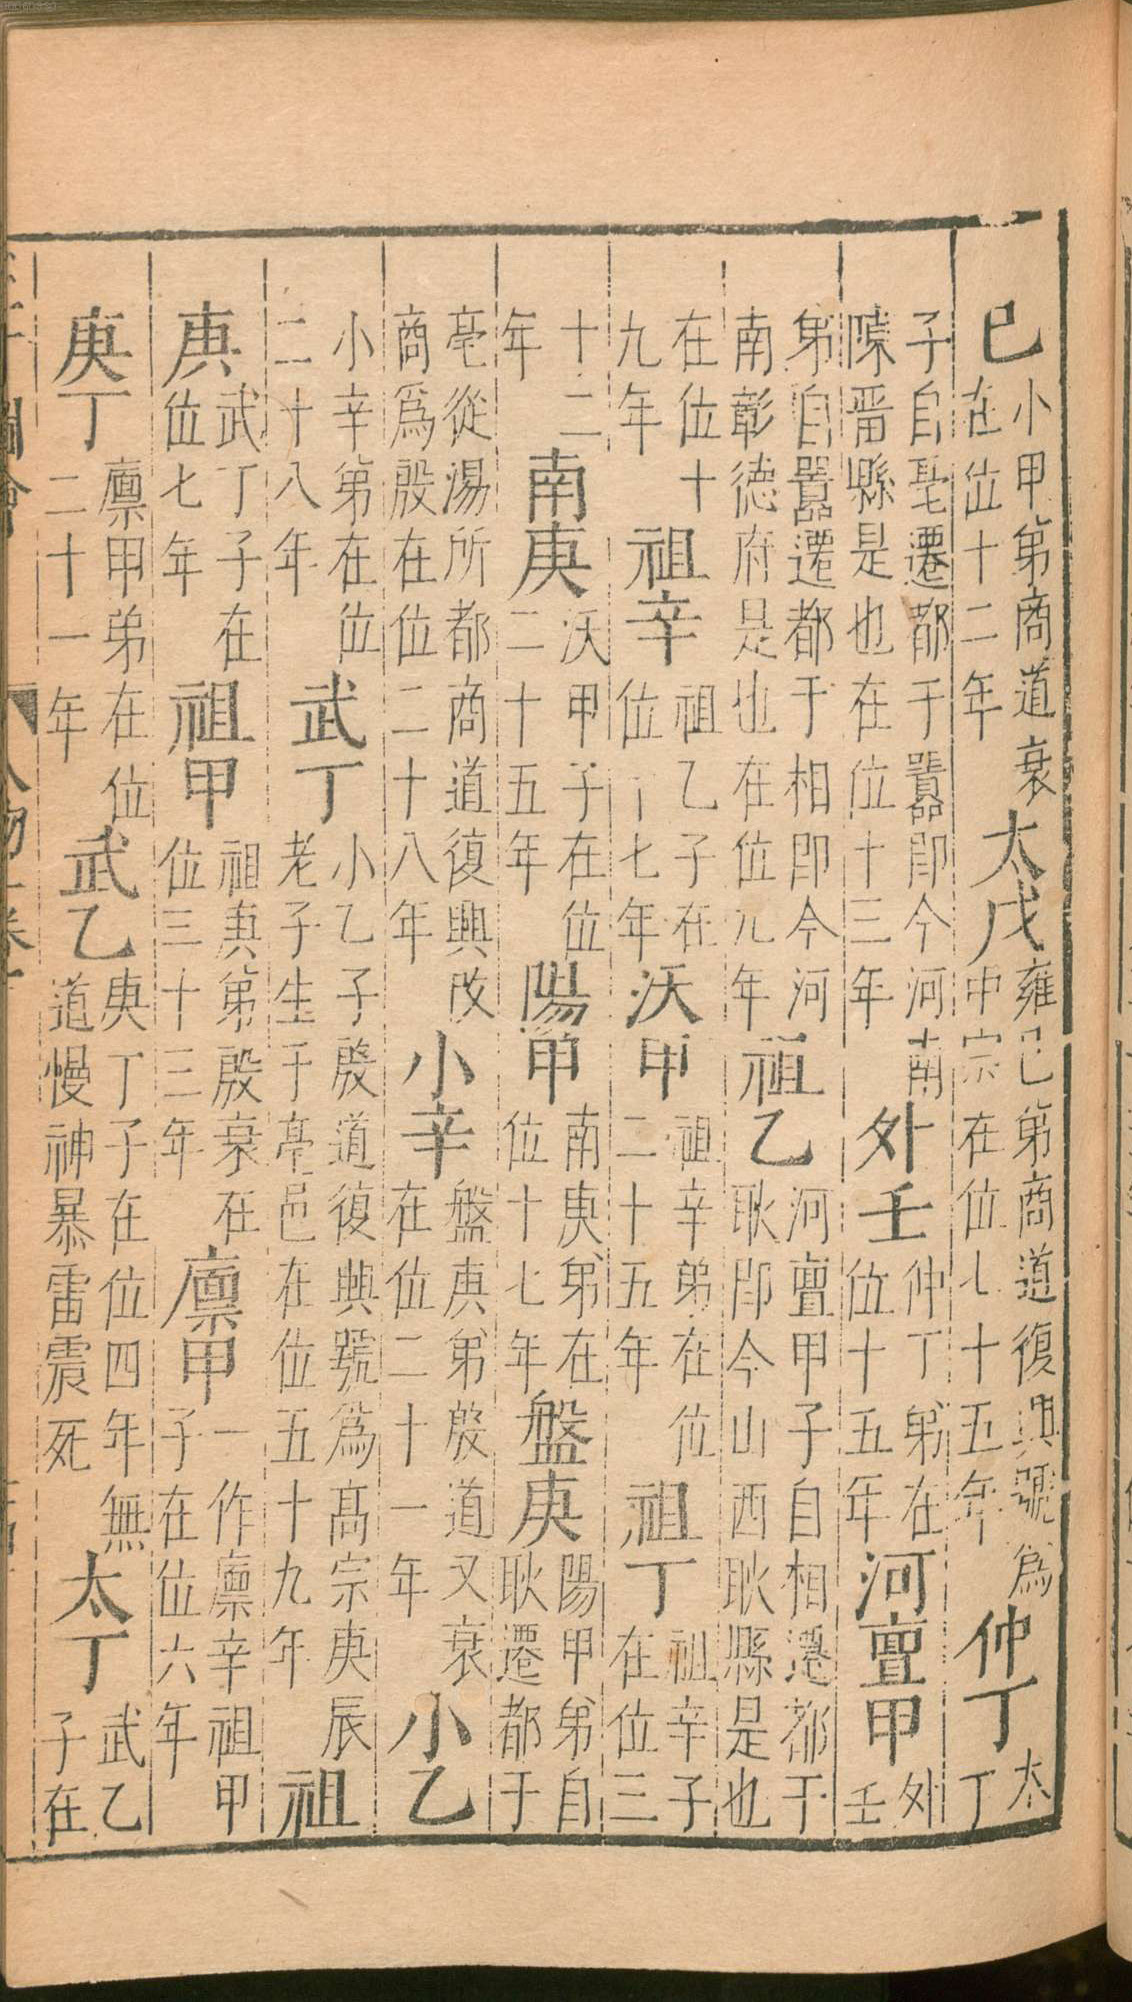 已小甲第商道衰在位十二年太戊雍已第商道復興號為中宗在位七十五年仲丁太丁
子自亳遷都于囂即今河南陳留縣是也在位十三年外壬仲丁第在位十五年河亶甲外壬
第自囂遷都于相即今河南彰德府是也在位元年祖乙河亶甲子自相遷都于耿即今山西耿縣是也
在位十九年祖辛祖乙子在位十七年沃甲祖辛弟在位二十五年祖丁祖辛子在位三
十二年南庚沃甲子在位二十五年陽甲南庚第在位十七年盤庚陽甲第自耿遷都于
亳從湯所都商道復興改商爲殷在位二十八年小辛盤庚第殷道又衰在位二十一年小乙
小辛第在位二十八年武丁小乙子殷道復興號爲高宗庚辰老子生于亳邑在位五十九年祖
庚武丁子在位七年祖甲祖庚第殷衰在位三十三年廩甲一作廩辛祖甲子在位六年
庚丁廩甲弟在位二十一年武乙庚丁子在位四年無道慢神暴雷震死太丁武乙子在